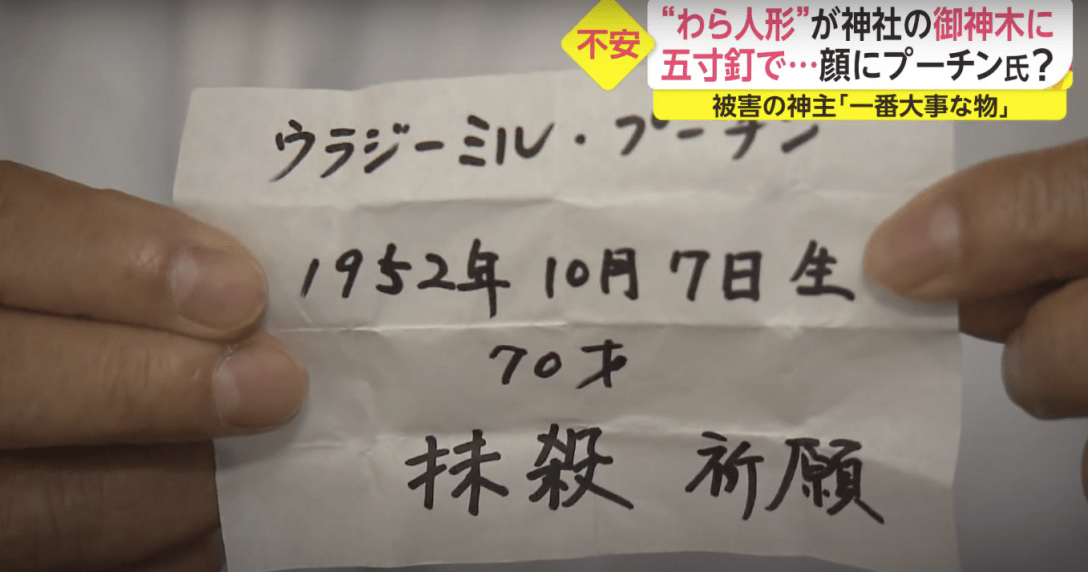 不安
“わら人形”が神社の御神木に
五寸釘で…顔にプーチン氏?
被害の神主「一番大事な物」
ウラジーミル・プーチン
1952年 10月 7日 生
70才
抹殺 祈願